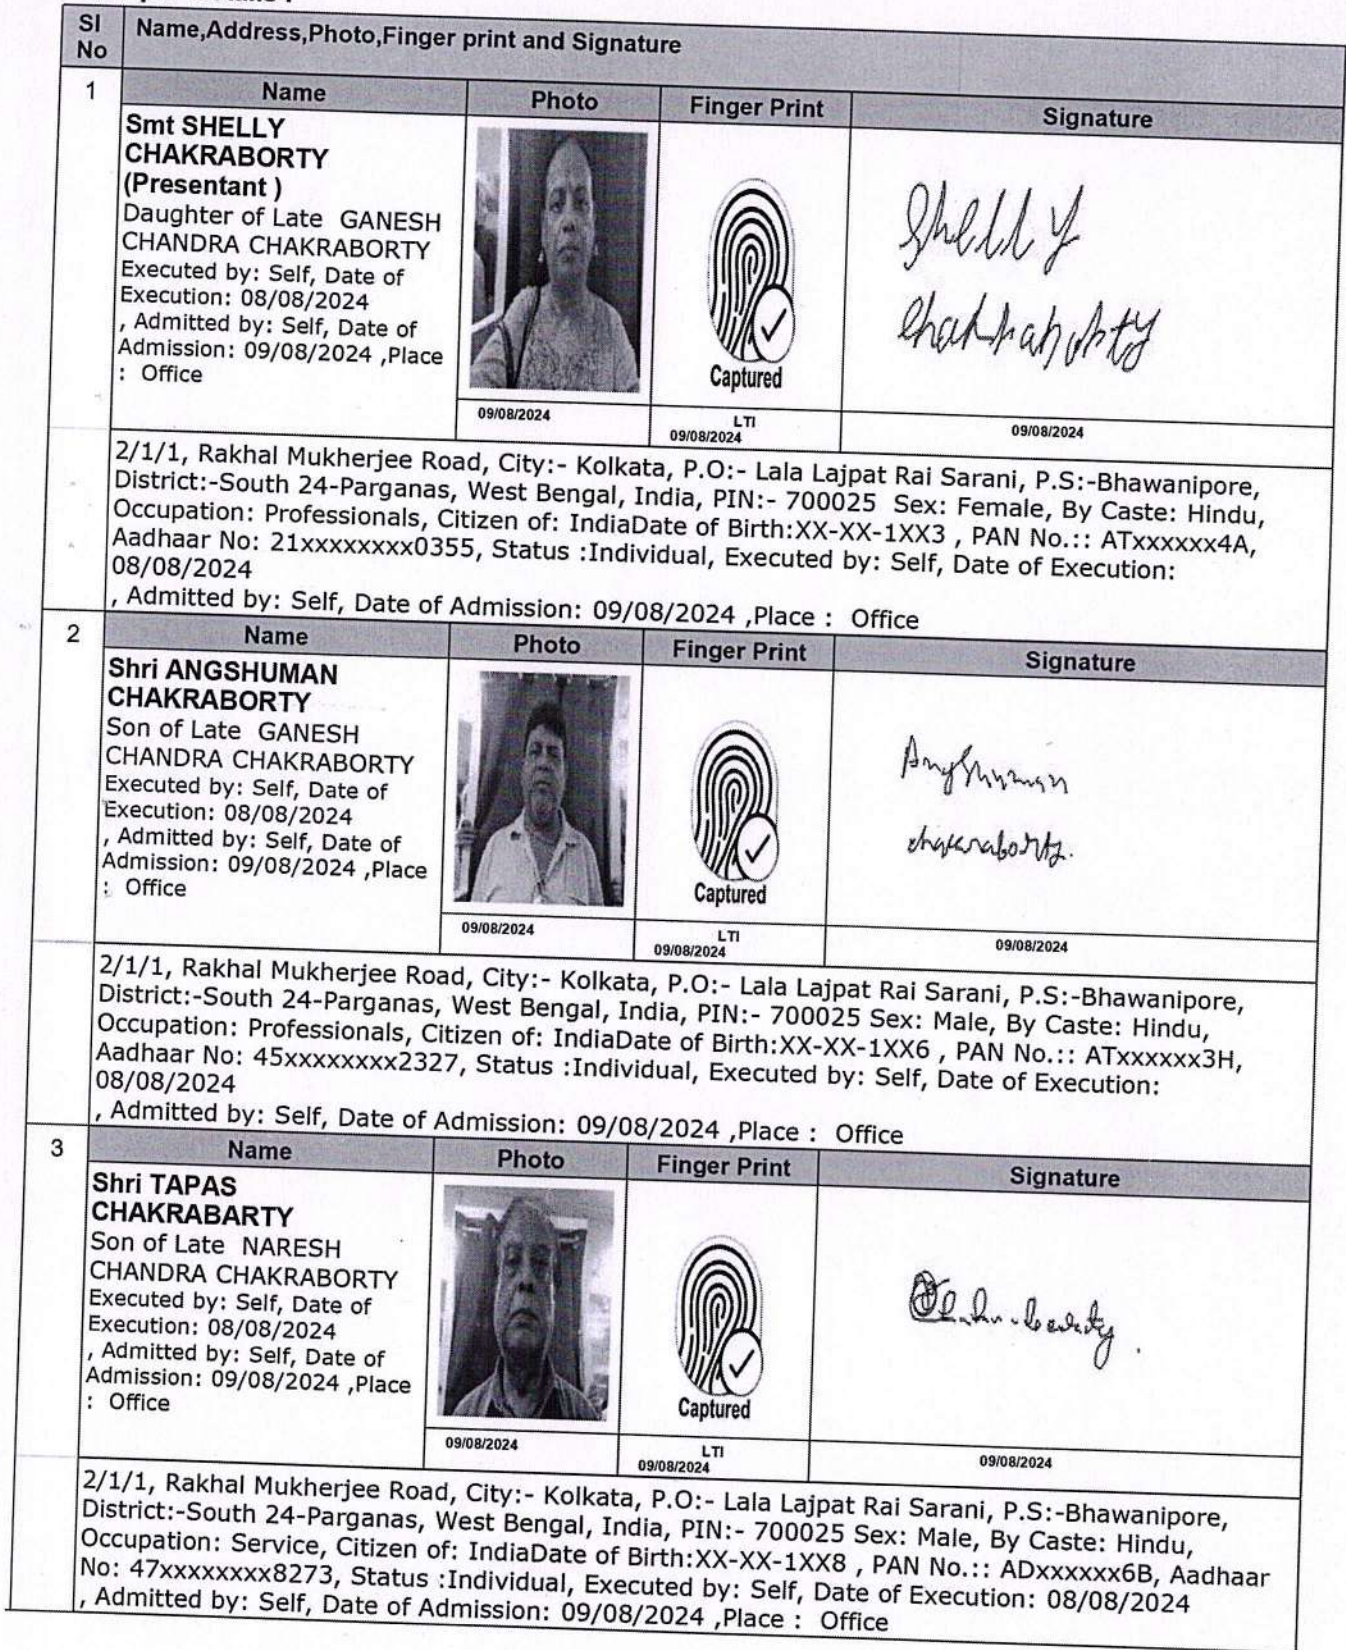 SI No Name,Address,Photo,Finger print and Signature
1 Name Photo Finger Print Signature
Smt SHELLY
CHAKRABORTY
(Presentant )
Daughter of Late GANESH
CHANDRA CHAKRABORTY
Executed by: Self, Date of
Execution: 08/08/2024
, Admitted by: Self, Date of
Admission: 09/08/2024 ,Place
: Office
Captured
Shelly
Chakraborty
09/08/2024 LTI 09/08/2024 09/08/2024
2/1/1, Rakhal Mukherjee Road, City:- Kolkata, P.O:- Lala Lajpat Rai Sarani, P.S:-Bhawanipore,
District:-South 24-Parganas, West Bengal, India, PIN:- 700025 Sex: Female, By Caste: Hindu,
Occupation: Professionals, Citizen of: IndiaDate of Birth:XX-XX-1XX3 , PAN No.:: ATxxxxxx4A,
Aadhaar No: 21xxxxxxxx0355, Status :Individual, Executed by: Self, Date of Execution:
08/08/2024
, Admitted by: Self, Date of Admission: 09/08/2024 ,Place : Office
2 Name Photo Finger Print Signature
Shri ANGSHUMAN
CHAKRABORTY
Son of Late GANESH
CHANDRA CHAKRABORTY
Executed by: Self, Date of
Execution: 08/08/2024
, Admitted by: Self, Date of
Admission: 09/08/2024 ,Place
: Office
Captured
Angshuman
chakraborty.
09/08/2024 LTI 09/08/2024 09/08/2024
2/1/1, Rakhal Mukherjee Road, City:- Kolkata, P.O:- Lala Lajpat Rai Sarani, P.S:-Bhawanipore,
District:-South 24-Parganas, West Bengal, India, PIN:- 700025 Sex: Male, By Caste: Hindu,
Occupation: Professionals, Citizen of: IndiaDate of Birth:XX-XX-1XX6 , PAN No.:: ATxxxxxx3H,
Aadhaar No: 45xxxxxxxx2327, Status :Individual, Executed by: Self, Date of Execution:
08/08/2024
, Admitted by: Self, Date of Admission: 09/08/2024 ,Place : Office
3 Name Photo Finger Print Signature
Shri TAPAS
CHAKRABARTY
Son of Late NARESH
CHANDRA CHAKRABORTY
Executed by: Self, Date of
Execution: 08/08/2024
, Admitted by: Self, Date of
Admission: 09/08/2024 ,Place
: Office
Captured
09/08/2024 LTI 09/08/2024 09/08/2024
2/1/1, Rakhal Mukherjee Road, City:- Kolkata, P.O:- Lala Lajpat Rai Sarani, P.S:-Bhawanipore,
District:-South 24-Parganas, West Bengal, India, PIN:- 700025 Sex: Male, By Caste: Hindu,
Occupation: Service, Citizen of: IndiaDate of Birth:XX-XX-1XX8 , PAN No.:: ADxxxxxx6B, Aadhaar
No: 47xxxxxxxx8273, Status :Individual, Executed by: Self, Date of Execution: 08/08/2024
, Admitted by: Self, Date of Admission: 09/08/2024 ,Place : Office